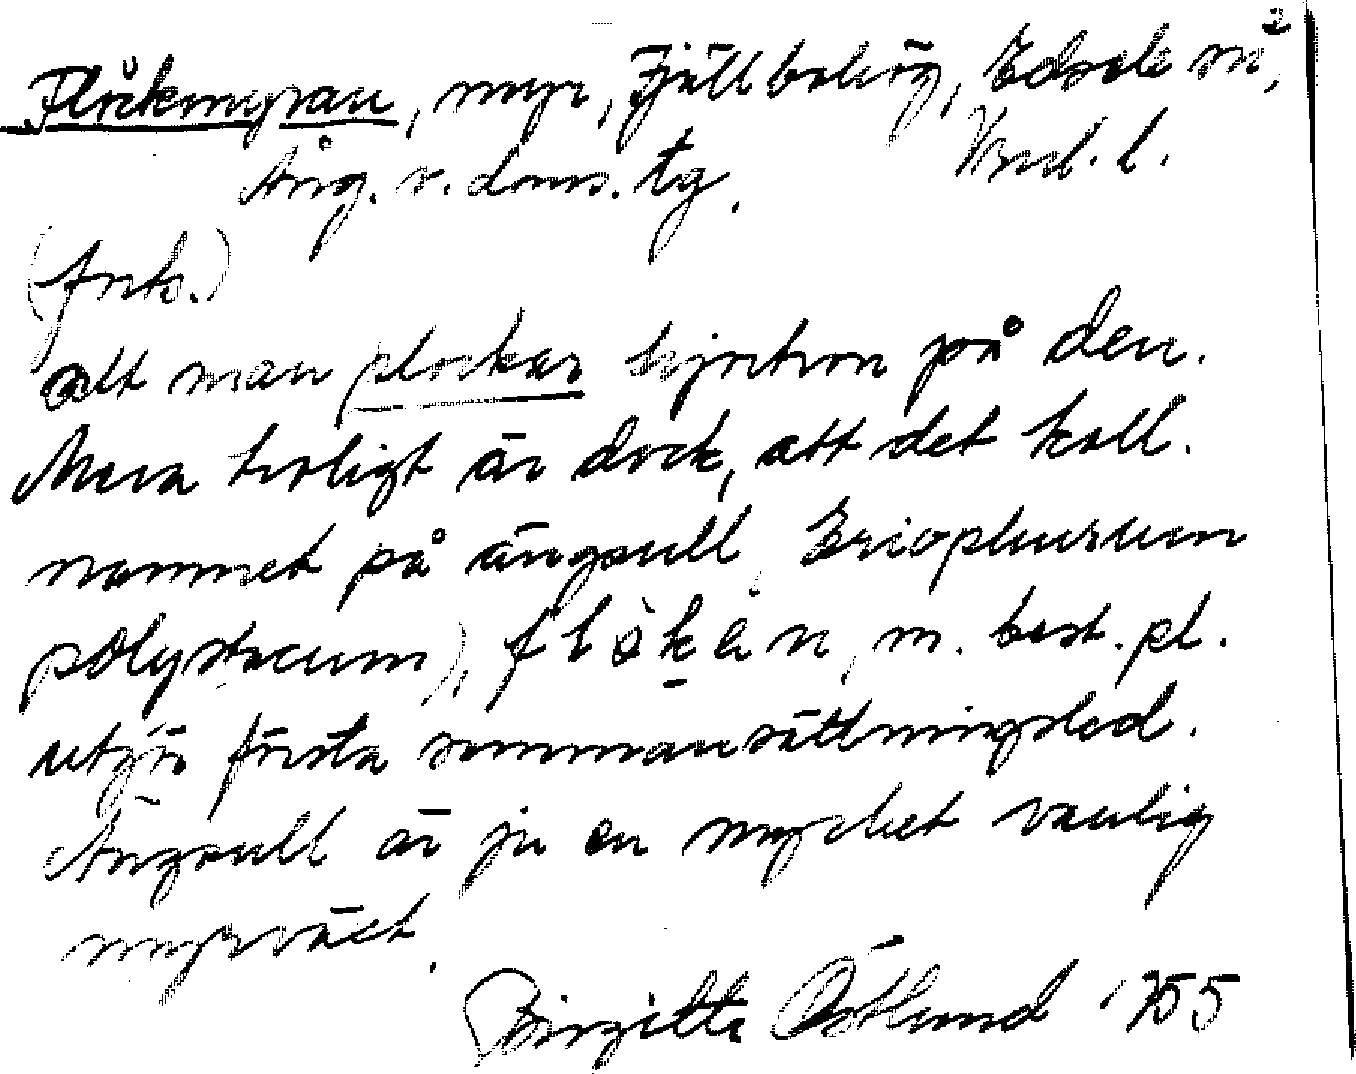 Flåkmyran, myr, Fjällbohög, Edsele sn,
Ång. v. doms. tg. Vnl. l.
(forts.)
att man plockar hjortron på den.
Mera troligt är dock, att det koll.
namnet på ängsull, Eriophurum
polystacum), flåkàn, m. best. pl.
utgör första sammansättningsled.
Ängsull är ju en mycket vanlig
myrväxt.
Birgitta Östlund 1955